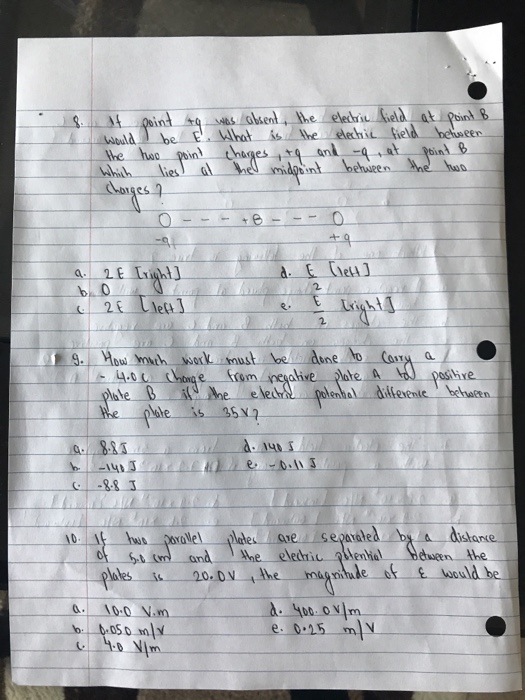 8. If point +q was absent, the electric field at point B
would be E. What is the electric field between
the two point charges, +q and -q, at point B
which lies at the midpoint between the two
charges?
O - - - + B - - - O
-q +q
a. 2E [right] d. E/2 [left]
b. 0 e. E/2 [right]
c. 2E [left]
9. How much work must be done to carry a
- 4.0 C charge from negative plate A to positive
plate B if the electric potential difference between
the plate is 35V?
a. 8.8 J d. 140 J
b. -140 J e. -0.11 J
c. -8.8 J
10. If two parallel plates are separated by a distance
of 5.0 cm and the electric potential between the
plates is 20.0V, the magnitude of ε would be
a. 100 V.m d. 400.0 V/m
b. 0.050 m/V e. 0.25 m/V
c. 4.0 V/m